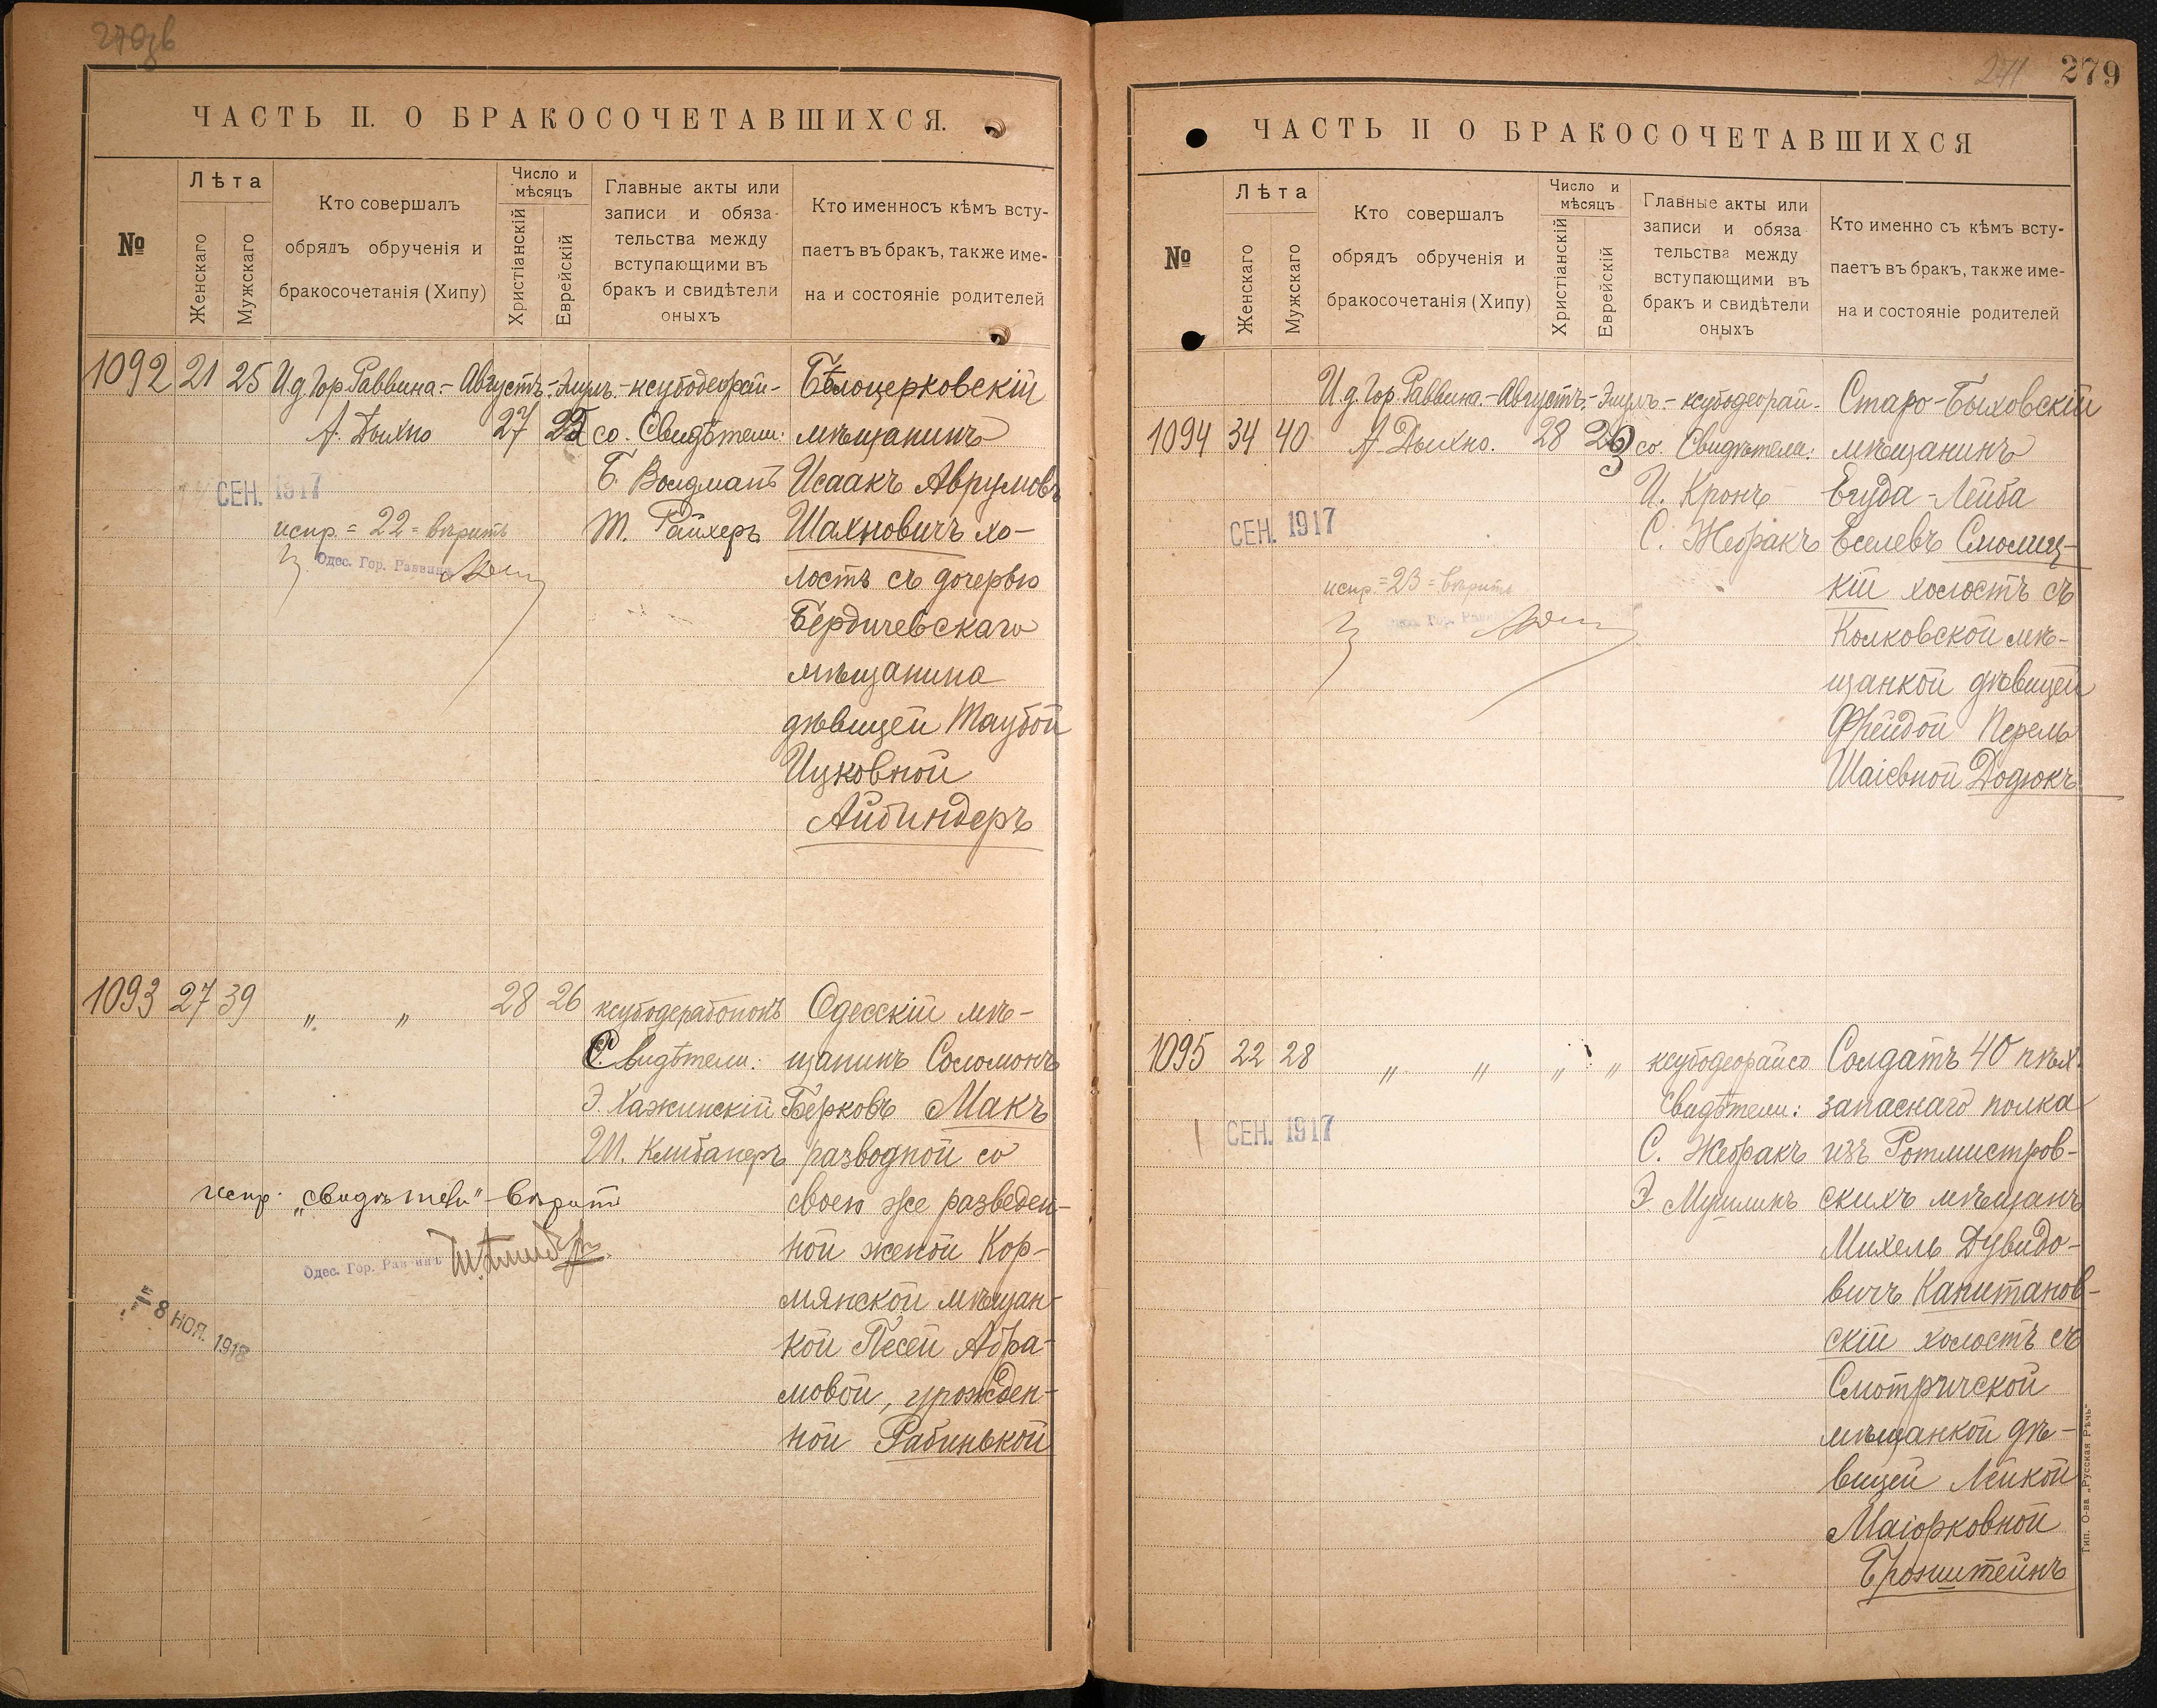 ЧАСТЬ II. О БРАКОСОЧЕТАВШИХСЯ.
№
Лѣта
Женскаго
Мужскаго
Кто совершалъ
обрядъ обрученія и
бракосочетанія (Хипу)
Число и
мѣсяцъ
Христіанскій
Еврейскій
Главные акты или
записи и обяза-
тельства между
вступающими въ
бракъ и свидѣтели
оныхъ
Кто именносъ кѣмъ всту-
паетъ въ бракъ, также име-
на и состояніе родителей
1092 21 25 И.д. Гор. Раввина.- Августъ.- Элулъ.- ксубодеорай-
А. Дыхно 27 22 со. Свидѣтели:
Б. Волдманъ
Т. Райхеръ
Бѣлоцерковскій
мѣщанинъ
Исаакъ Аврумовъ
Шахновичъ хо-
лостъ съ дочерью
Бердичевскаго
мѣщанина
дѣвицей Таубой
Ицковной
Айбиндеръ
СЕН. 1917
испр. = 22 = вѣрить
Одес. Гор. Раввинъ
1093 27 39 „ „ 28 26 ксубодерабононъ
Свидѣтели:
Э. Хажинскій
Ш. Клибанеръ
Одесскій мѣ-
щанинъ Соломонъ
Берковъ Макъ
разводной со
своею же разведен-
ной женой Кор-
мянской мѣщан-
кой Песей Абра-
мовой, урожден-
ной Рабинькой
испр. „свидѣтели" вѣрить
Одес. Гор. Раввинъ
= 8 НОЯ. 1918
279
ЧАСТЬ II О БРАКОСОЧЕТАВШИХСЯ
№
Лѣта
Женскаго
Мужскаго
Кто совершалъ
обрядъ обрученія и
бракосочетанія (Хипу)
Число и
мѣсяцъ
Христіанскій
Еврейскій
Главные акты или
записи и обяза
тельства между
вступающими въ
бракъ и свидѣтели
оныхъ
Кто именно съ кѣмъ всту-
паетъ въ бракъ, также име-
на и состояніе родителей
И.д. Гор. Раввина.- Августъ.- Элулъ.- ксубодеорай-
1094 34 40 А. Дыхно. 28 23 со. Свидѣтела:
И. Кронъ
С. Жебракъ
Старо-Быховскій
мѣщанинъ
Егуда-Лейба
Еселевъ Смолиц-
кій холостъ съ
Колковской мѣ-
щанкой дѣвицей
Фрейдой Перель
Шаіевной Додюкъ
СЕН. 1917
испр. = 23 = вѣрить
1095 22 28 „ „ „ „ ксубодеорайсо
Свидѣтели:
С. Жебракъ
Э. Мушлинъ
Солдатъ 40 пѣх.
запаснаго полка
изъ Ротмистров-
скихъ мѣщанъ
Михель Дувидо-
вичъ Капитанов-
скій холостъ съ
Смотричской
мѣщанкой дѣ-
вицей Лейкой
Маіорковной
Бронштейнъ
СЕН. 1917
Тип. О-ва „Русская Рѣчь"